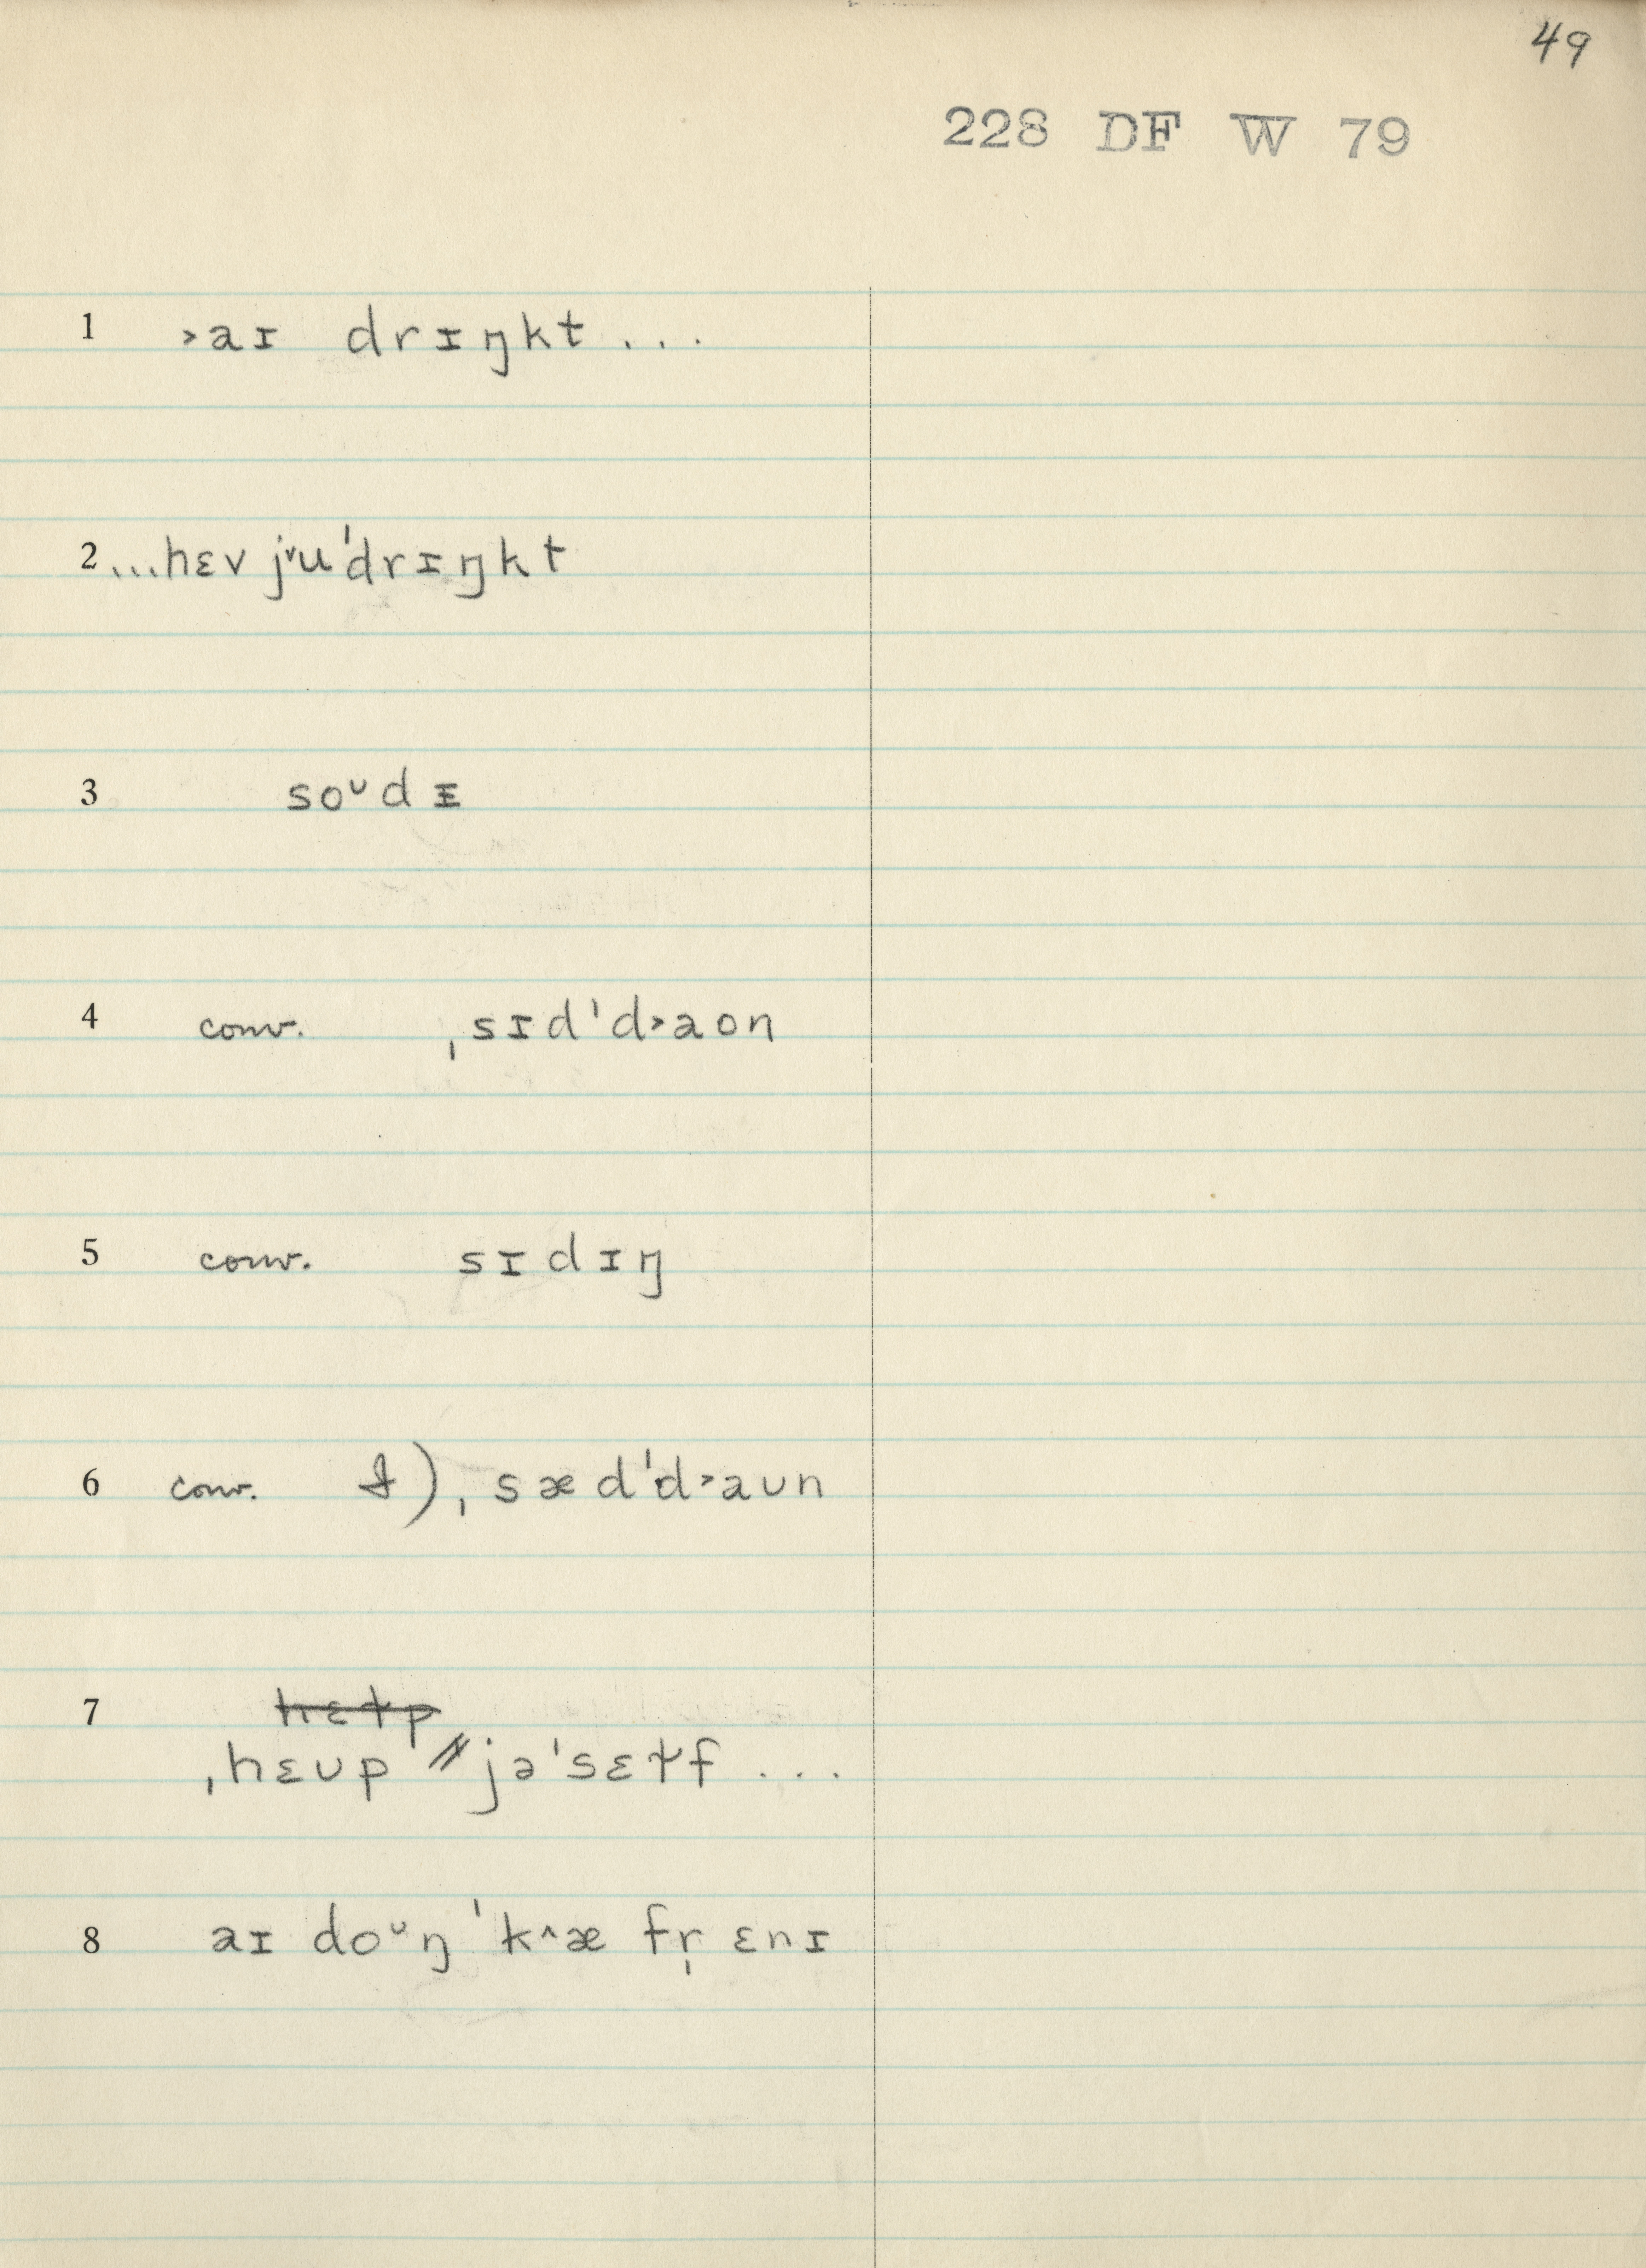 49
228 DF W 79
1 ˃aɪ drɪŋkt...
2 ...hɛv jᵛu ˈdrɪŋkt
3 soᶷdᵻ
4 conv. ˌsɪdˈd˃aon
5 conv. sɪdɪŋ
6 conv. ˌsædˈd˃aʊn
7 hɛɫp
ˌhɛʊp // jəˈsɛɫf ...
8 aɪ doᶷŋ ˈk^æ fr̩ ɛnɪ